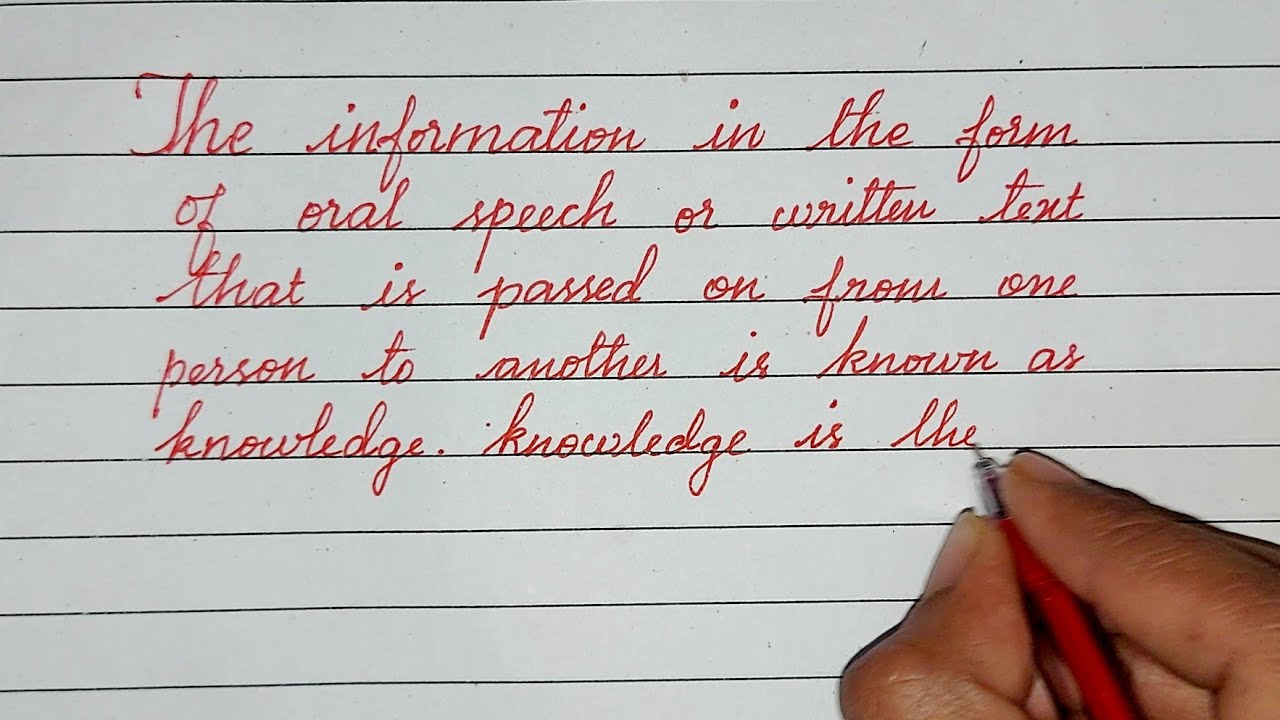 The information in the form
of oral speech or written text
that is passed on from one
person to another is known as
knowledge. knowledge is the